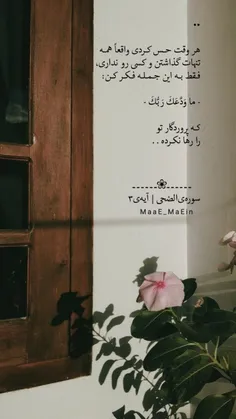 ..
هر وقت حس کردی واقعاً همه
تنهات گذاشتن و کسی رو نداری،
فقط به این جمله فکر کن:
· ما وَدَّعَكَ رَبُّكَ ·
که پروردگار تو
را رها نکرده . .
سوره‌ی الضحی | آیه‌ی ۳
MaaE_MaEin